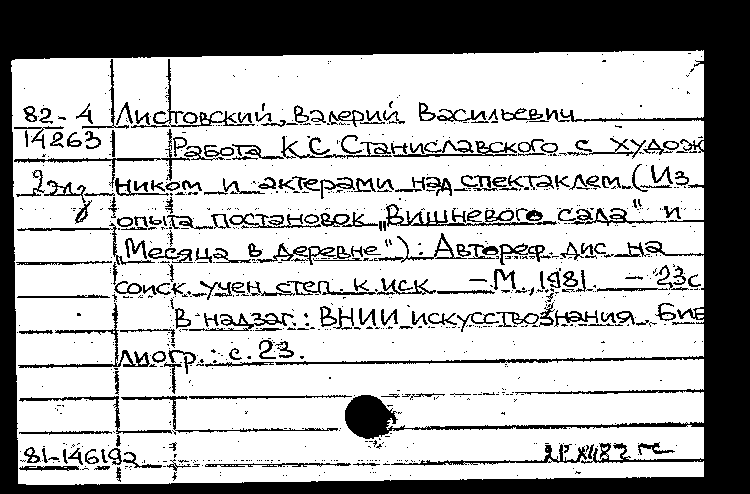 82-4 Листовский, Валерий Васильевич
14263 Работа К С Станиславского с худож
2 экз ником и актерами над спектаклем (Из
опыта постановок „Вишневого сада" и
„Месяца в деревне"): Автореф. дис на
соиск. учен. степ. к. иск. – М., 1981. – 23с
В надзаг.: ВНИИ искусствознания. Биб
лиогр.: с. 23.
81-146192